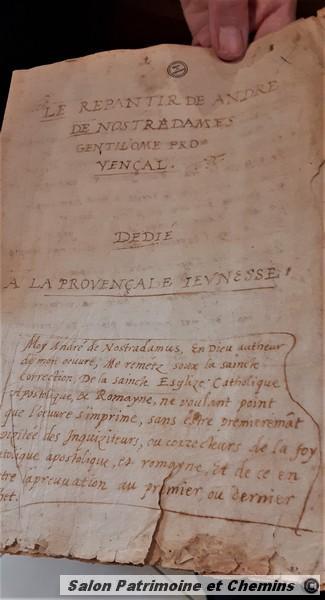 LE REPANTIR DE ANDRE
DE NOSTREDAMES
GENTILOME PRO
VENÇAL.
DEDIÉ
A LA PROVENÇALE IEVNESSE
Moy André de Nostradamus, En Dieu autheur
de mon oeuvre, Me remetz soux la saincte
Correction, De la saincte Esglize Catholique
Apostolique, & Romayne, ne voulant point
que l'oeuvre s'imprime, sans estre premieremāt
des Inquiziteurs, ou correcteurs de la foy
apostolique, et romayne, et de ce en
au premier, ou dernier
Salon Patrimoine et Chemins ©